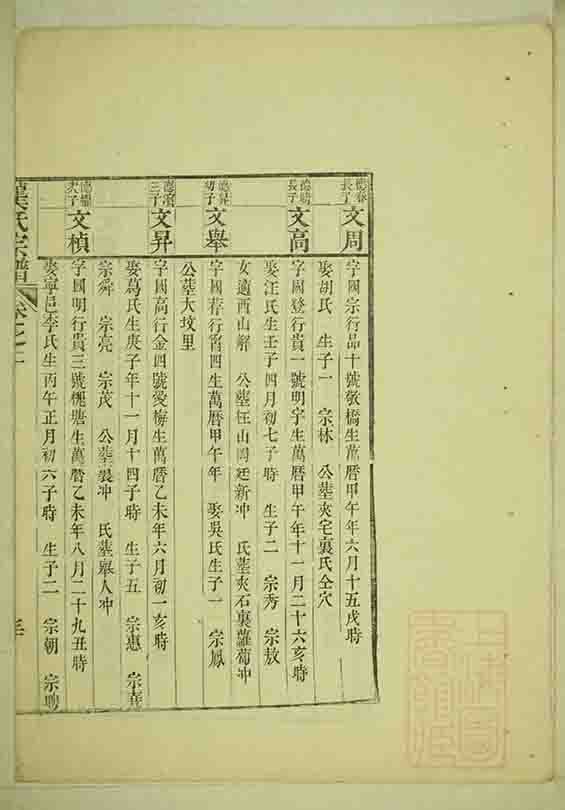 德春長子 文周
字國宗行品十號敬橋生萬曆甲午年六月十五戌時
娶胡氏 生子一 宗林 公墓夾宅裏氏仝穴
德明長子 文高
字國登行貴一號明宇生萬曆甲午年十一月二十六亥時
娶汪氏生壬子四月初七子時 生子二 宗秀 宗敖
女適西山解 公墓汪山同廷新冲 氏墓夾石裏蘿蔔冲
德昇幼子 文舉
字國荐行宵四生萬曆甲午年 娶吳氏生子一 宗鳳
公墓大坟里
三子 文昇
字國高行金四號愛梅生萬曆乙未年六月初一亥時
娶葛氏生庚子年十一月十四子時 生子五 宗惠 宗堯
宗舜 宗亮 宗茂 公墓裴冲 氏墓舉人冲
德耀次子 文楨
字國明行貴三號槐塘生萬曆乙未年八月二十九丑時
娶寧邑李氏生丙午正月初六子時 生子二 宗朝 宗聘
氏宗譜 卷之二